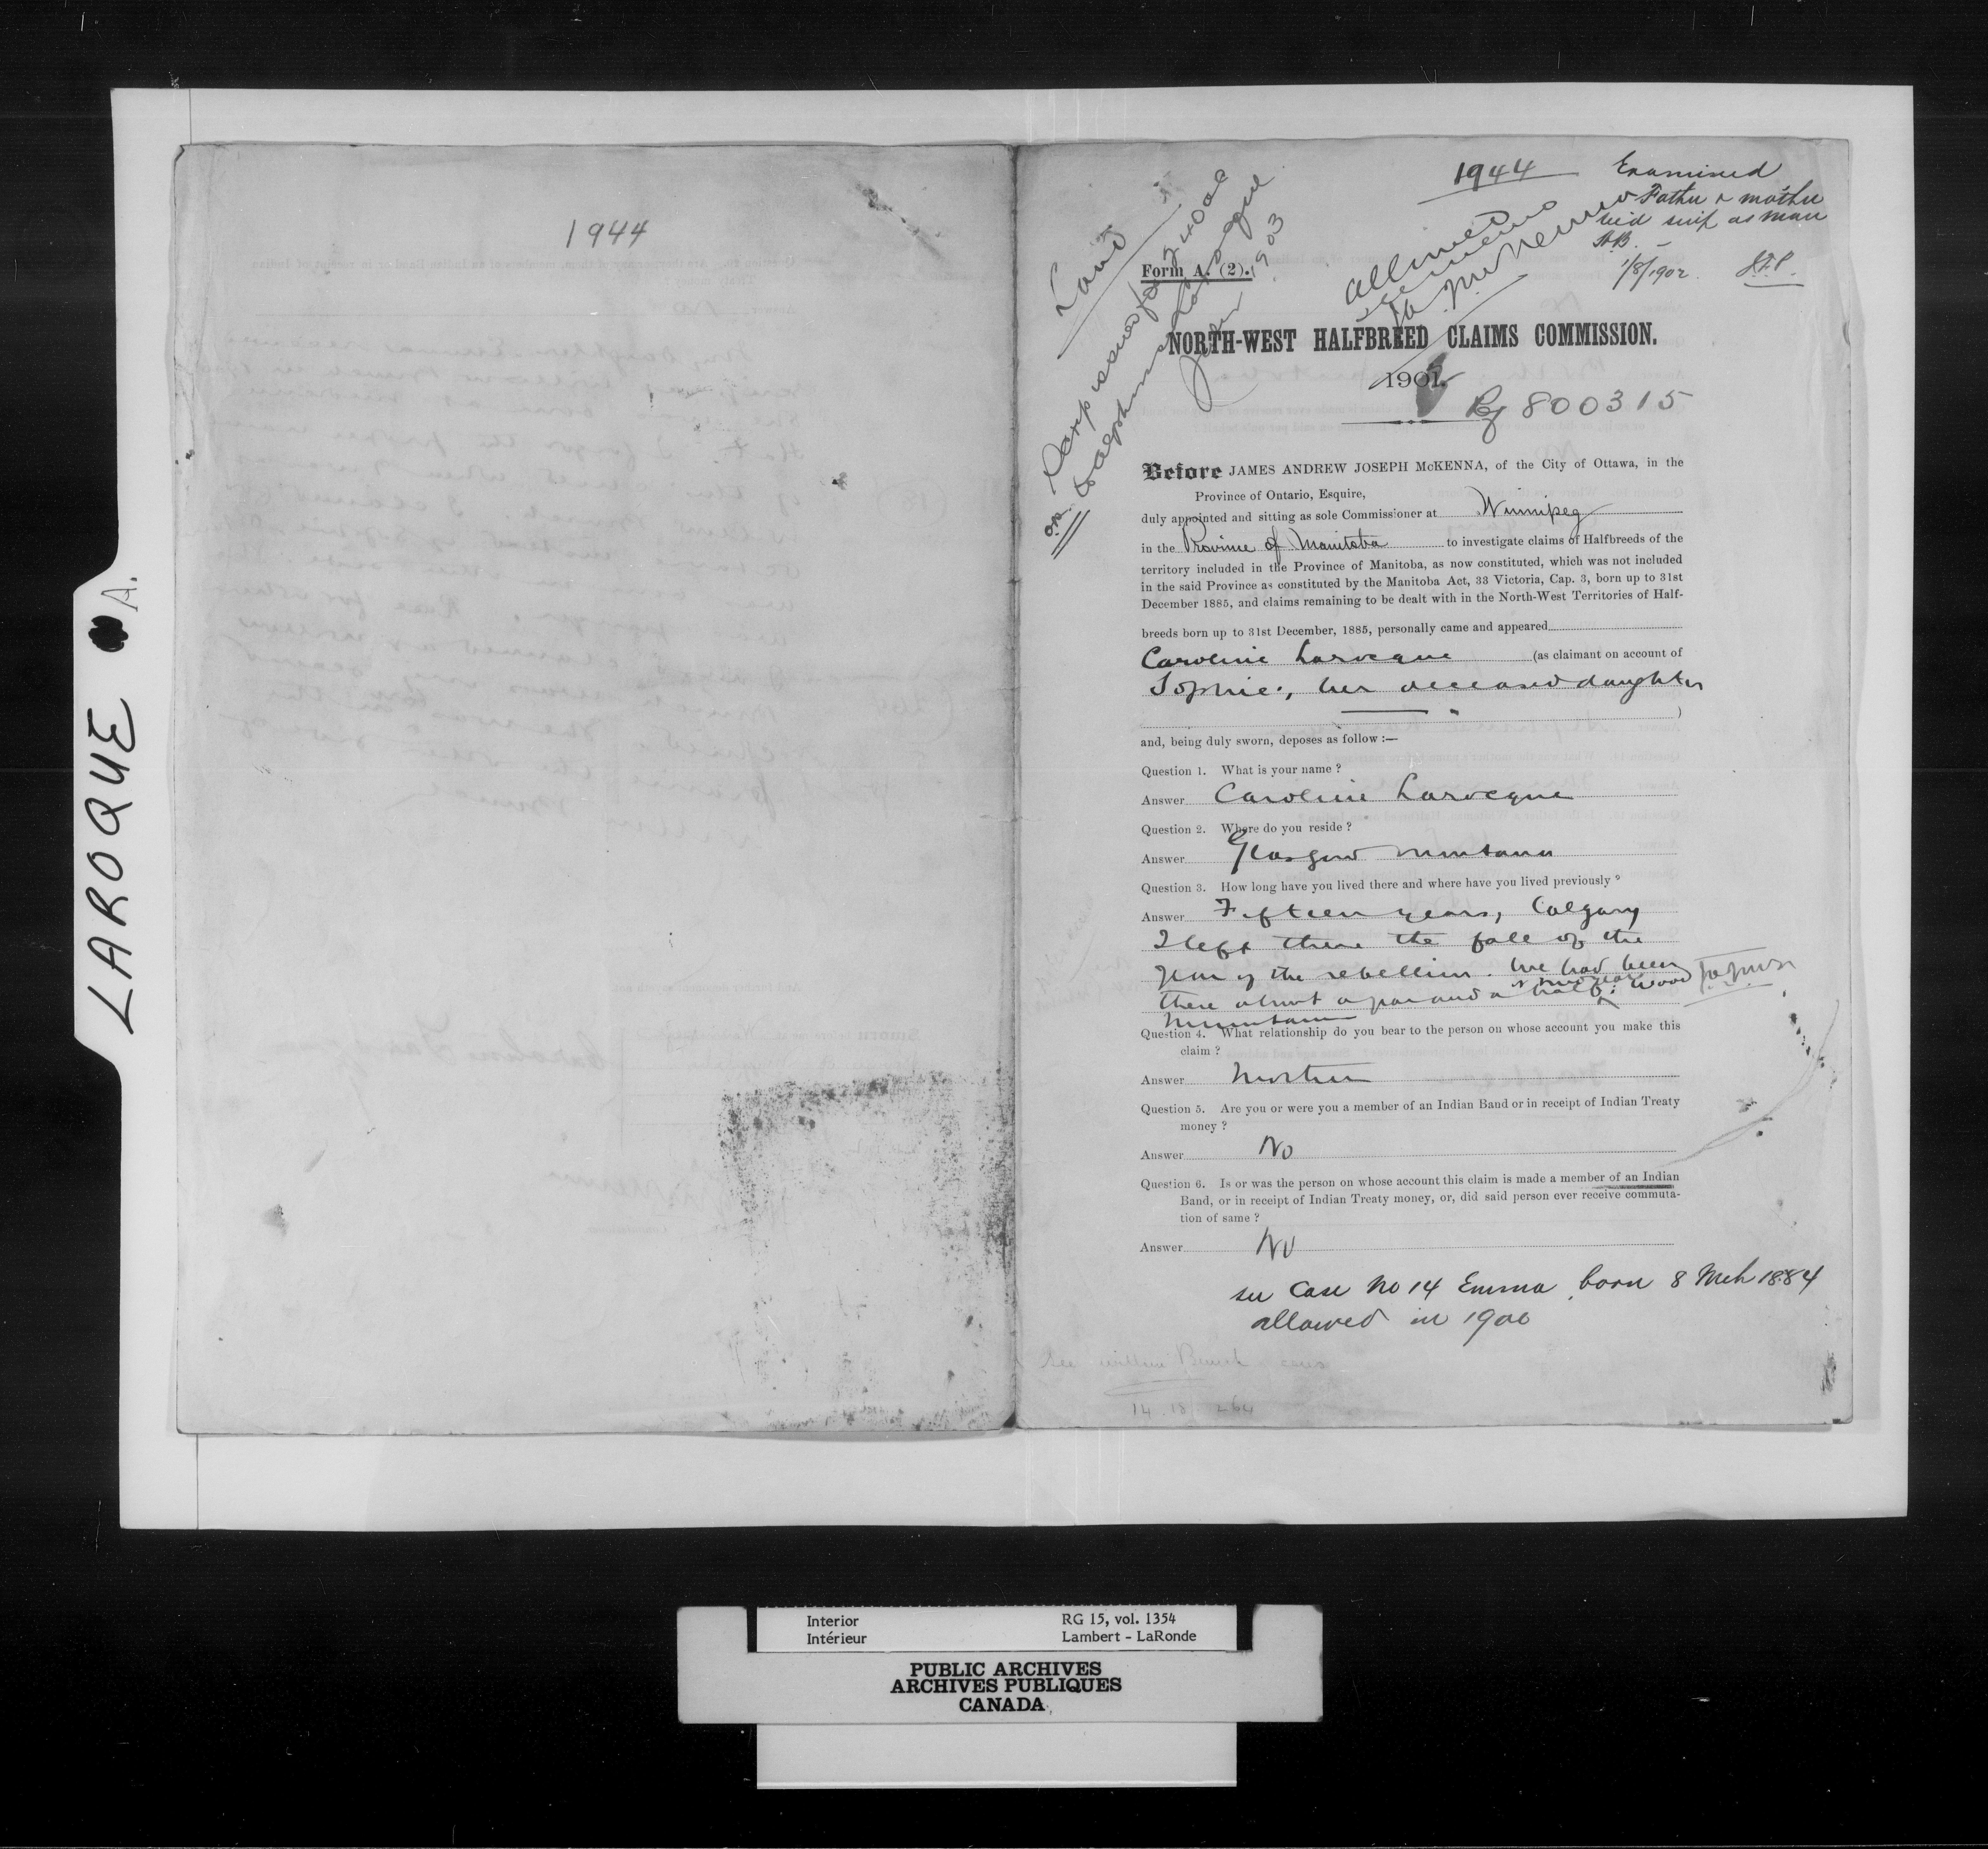 LAROQUE A.
1944
1944
Examined
Father & mother
rec'd scrip as Man
H.B.
1/8/1902. J.F.P.
Land
Scrip issued for $240 00
to Alphonse Larocque
1903
Allowed
JA McKenna
Form A. (2).
NORTH-WEST HALFBREED CLAIMS COMMISSION.
1901.
800315
Before JAMES ANDREW JOSEPH McKENNA, of the City of Ottawa, in the
Province of Ontario, Esquire,
duly appointed and sitting as sole Commissioner at Winnipeg
in the Province of Manitoba to investigate claims of Halfbreeds of the
territory included in the Province of Manitoba, as now constituted, which was not included
in the said Province as constituted by the Manitoba Act, 33 Victoria, Cap. 3, born up to 31st
December 1885, and claims remaining to be dealt with in the North-West Territories of Half-
breeds born up to 31st December, 1885, personally came and appeared
Caroline Larocque (as claimant on account of
Sophie, her deceased daughter
)
and, being duly sworn, deposes as follow :—
Question 1. What is your name ?
Answer Caroline Larocque
Question 2. Where do you reside ?
Answer Glasgow Montana
Question 3. How long have you lived there and where have you lived previously ?
Answer Fifteen years, Calgary
I left there the fall of the
year of the rebellion. We had been
there about a year and a half. Wood
Mountain
Question 4. What relationship do you bear to the person on whose account you make this
claim ?
Answer Mother
Question 5. Are you or were you a member of an Indian Band or in receipt of Indian Treaty
money ?
Answer No
Question 6. Is or was the person on whose account this claim is made a member of an Indian
Band, or in receipt of Indian Treaty money, or, did said person ever receive commuta-
tion of same ?
Answer No
see Case No 14 Emma born 8 Mch 1884
allowed in 1900
see within Bunch cases
14. 18 264
Interior RG 15, vol. 1354
Intérieur Lambert - LaRonde
PUBLIC ARCHIVES
ARCHIVES PUBLIQUES
CANADA